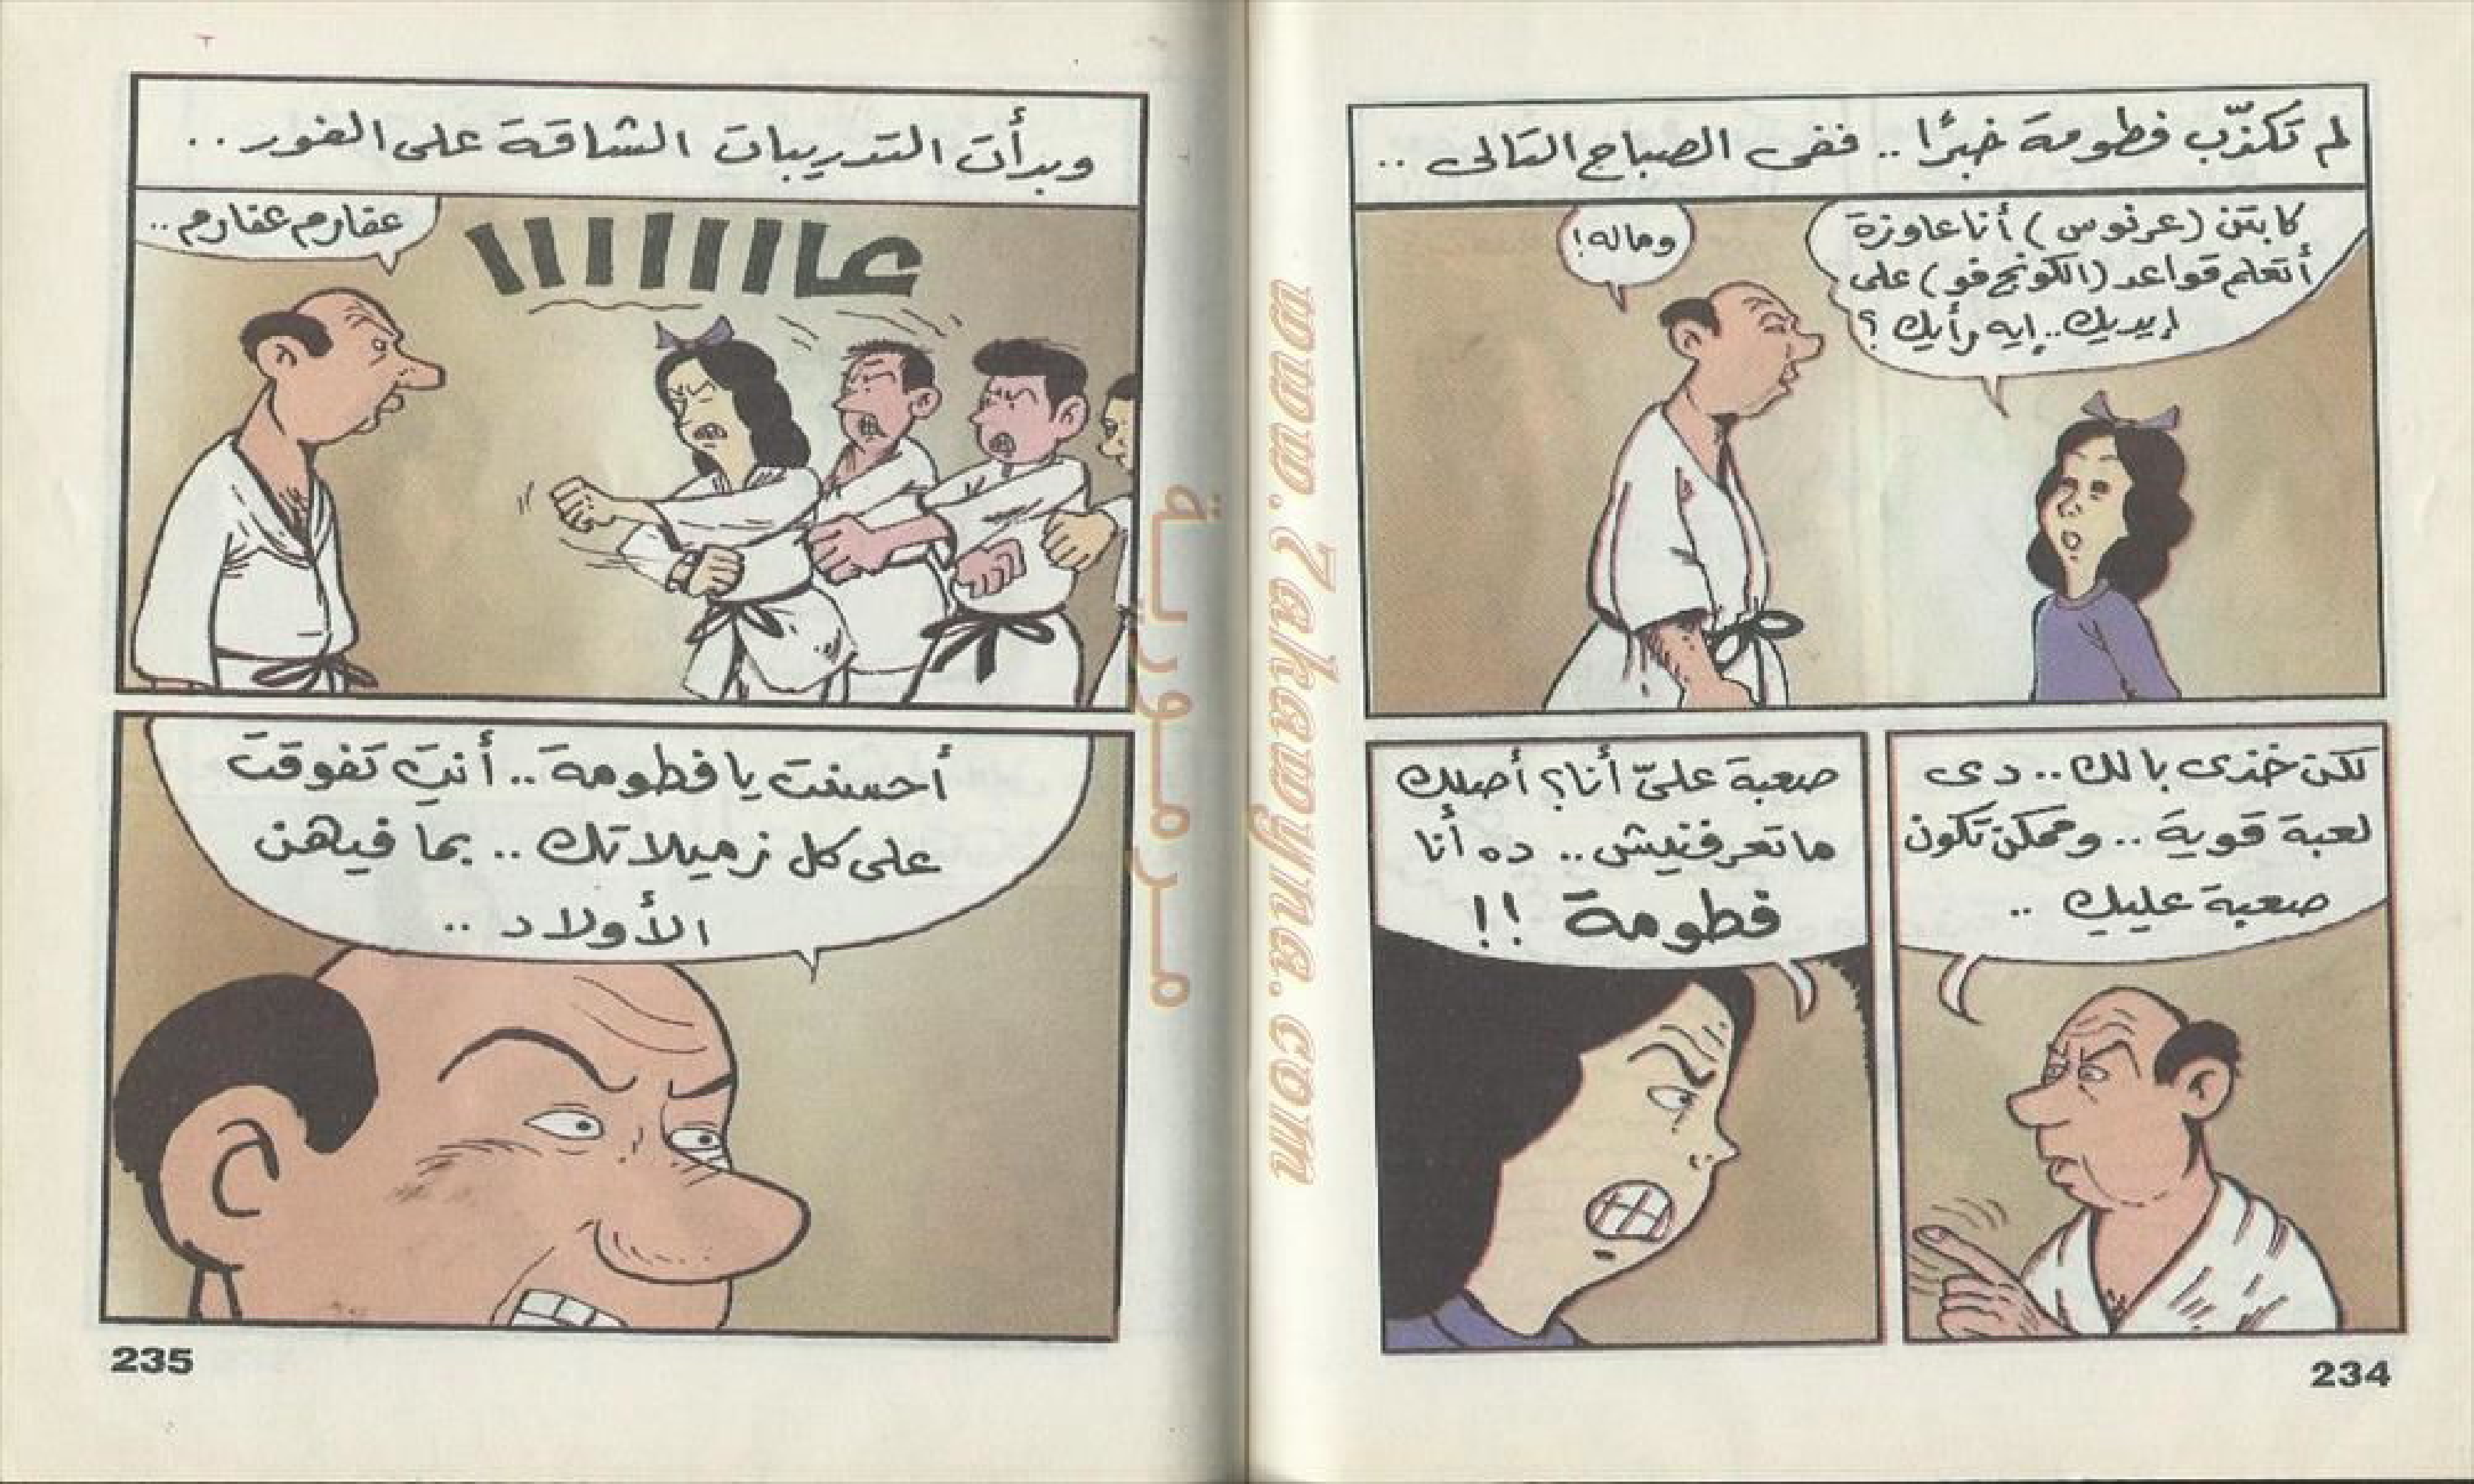 لم تكذّب فطومة خبرًا .. ففى الصباح التالى ..
كابتن (عرنوس) أنا عاوزة
أتعلم قواعد (الكونج فو) على
إيديك .. إيه رأيك ؟
وماله !
لكن خذى بالك .. دى
لعبة قوية .. وممكن تكون
صعبة عليك ..
صعبة علىّ أنا ؟ أصلك
ماتعرفنيش .. ده أنا
فطومة !!
234
وبدأت التدريبات الشاقة على الفور ..
عاااااااا
عفارم عفارم ..
أحسنت يا فطومة .. أنتِ تفوقت
على كل زميلاتك .. بما فيهن
الأولاد ..
235
مرمورية
www.7akawyna.com